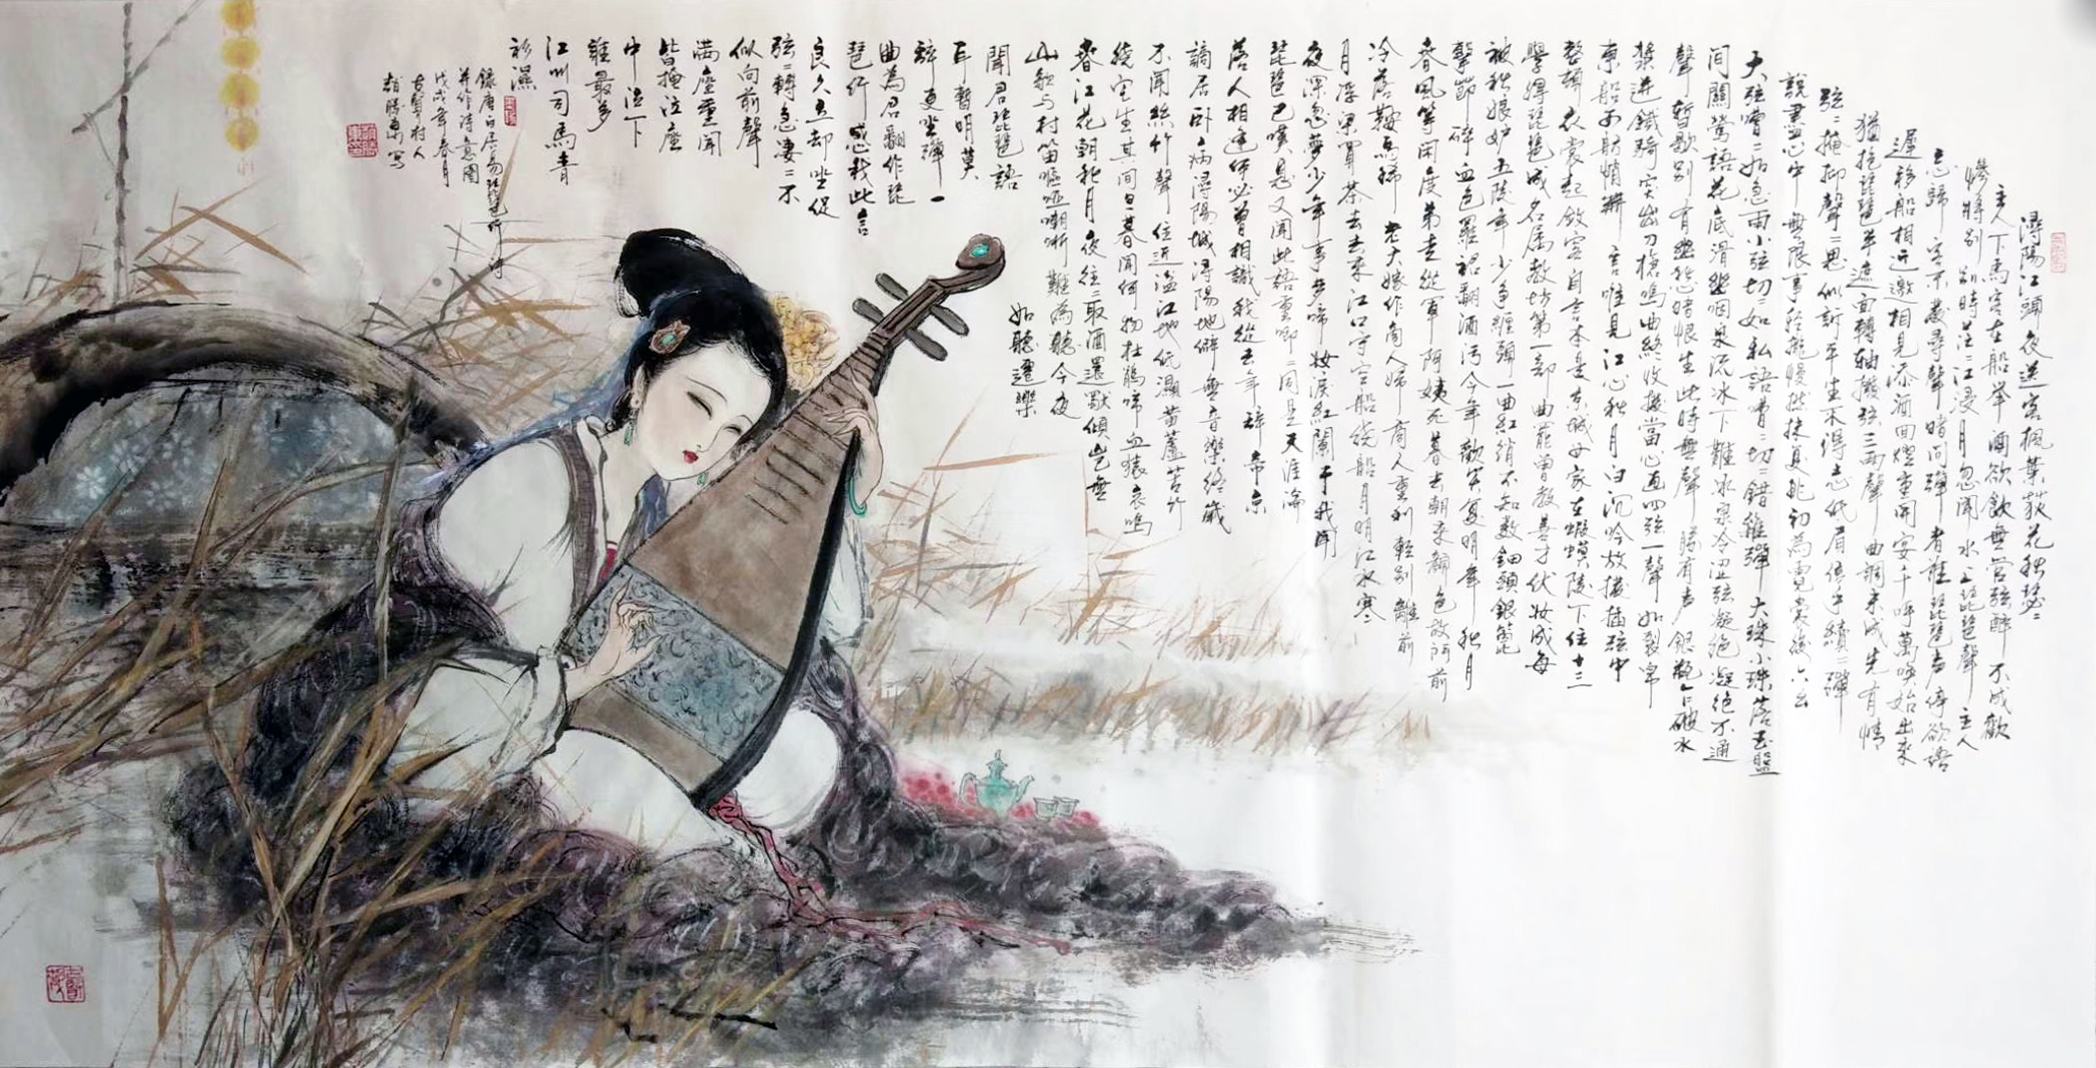 潯陽江頭夜送客楓葉荻花秋瑟〻
主人下馬客在船举酒欲飲無管弦醉不成歡
慘將别别時茫〻江浸月忽聞水上琵琶聲主人
忘歸客不發尋聲暗问彈者誰琵琶声停欲语
遲移船相近邀相見添酒回燈重開宴千呼萬喚始出來
猶抱琵琶半遮面轉轴撥弦三两聲曲調未成先有情
弦〻掩抑聲〻思似訴平生不得志低眉信手續〻彈
說盡心中無限事轻攏慢撚抹复挑初為霓裳後六幺
大弦嘈〻如急雨小弦切〻如私語嘈〻切〻錯雜彈大珠小珠落玉盤
间關鶯語花底滑幽咽泉流冰下難冰泉冷涩弦凝绝凝绝不通
聲暂歇别有幽愁暗恨生此時無聲勝有声银瓶乍破水
漿迸鐵騎突出刀槍鳴曲終收撥當心画四弦一聲如裂帛
東船西舫悄無言唯見江心秋月白沉吟放撥插弦中
整頓衣裳起敛容自言本是京城女家在蝦蟆陵下住十三
學得琵琶成名属教坊第一部曲罷曾教善才伏妝成每
被秋娘妒五陵年少争纏頭一曲红绡不知数钿頭銀篦
擊節碎血色羅裙翻酒污今年歡笑复明年秋月
春風等闲度弟走從軍阿姨死暮去朝来颜色故門前
冷落鞍馬稀老大嫁作商人婦商人重利輕别離前
月浮梁買茶去去来江口守空船绕船月明江水寒
夜深忽夢少年事梦啼妝淚红闌干我聞
琵琶已嘆息又聞此語重唧〻同是天涯淪
落人相逢何必曾相識我從去年辞帝京
謫居卧病潯陽城潯陽地僻無音樂终歲
不聞絲竹聲住近湓江地低濕黄蘆苦竹
绕宅生其间旦暮聞何物杜鹃啼血猿哀鳴
春江花朝秋月夜往〻取酒還獨傾豈無
山歌与村笛嘔哑嘲哳難為聽今夜
聞君琵琶語如聽樂
耳暫明莫
辞更坐彈一
曲為君翻作琵
琶行感我此言
良久立却坐促
弦〻轉急凄〻不
似向前聲
满座重聞
皆掩泣座
中泣下
誰最多
江州司馬青
衫濕
錄唐白居易琵琶行诗
并作诗意图
戊戌年春月
古賢村人